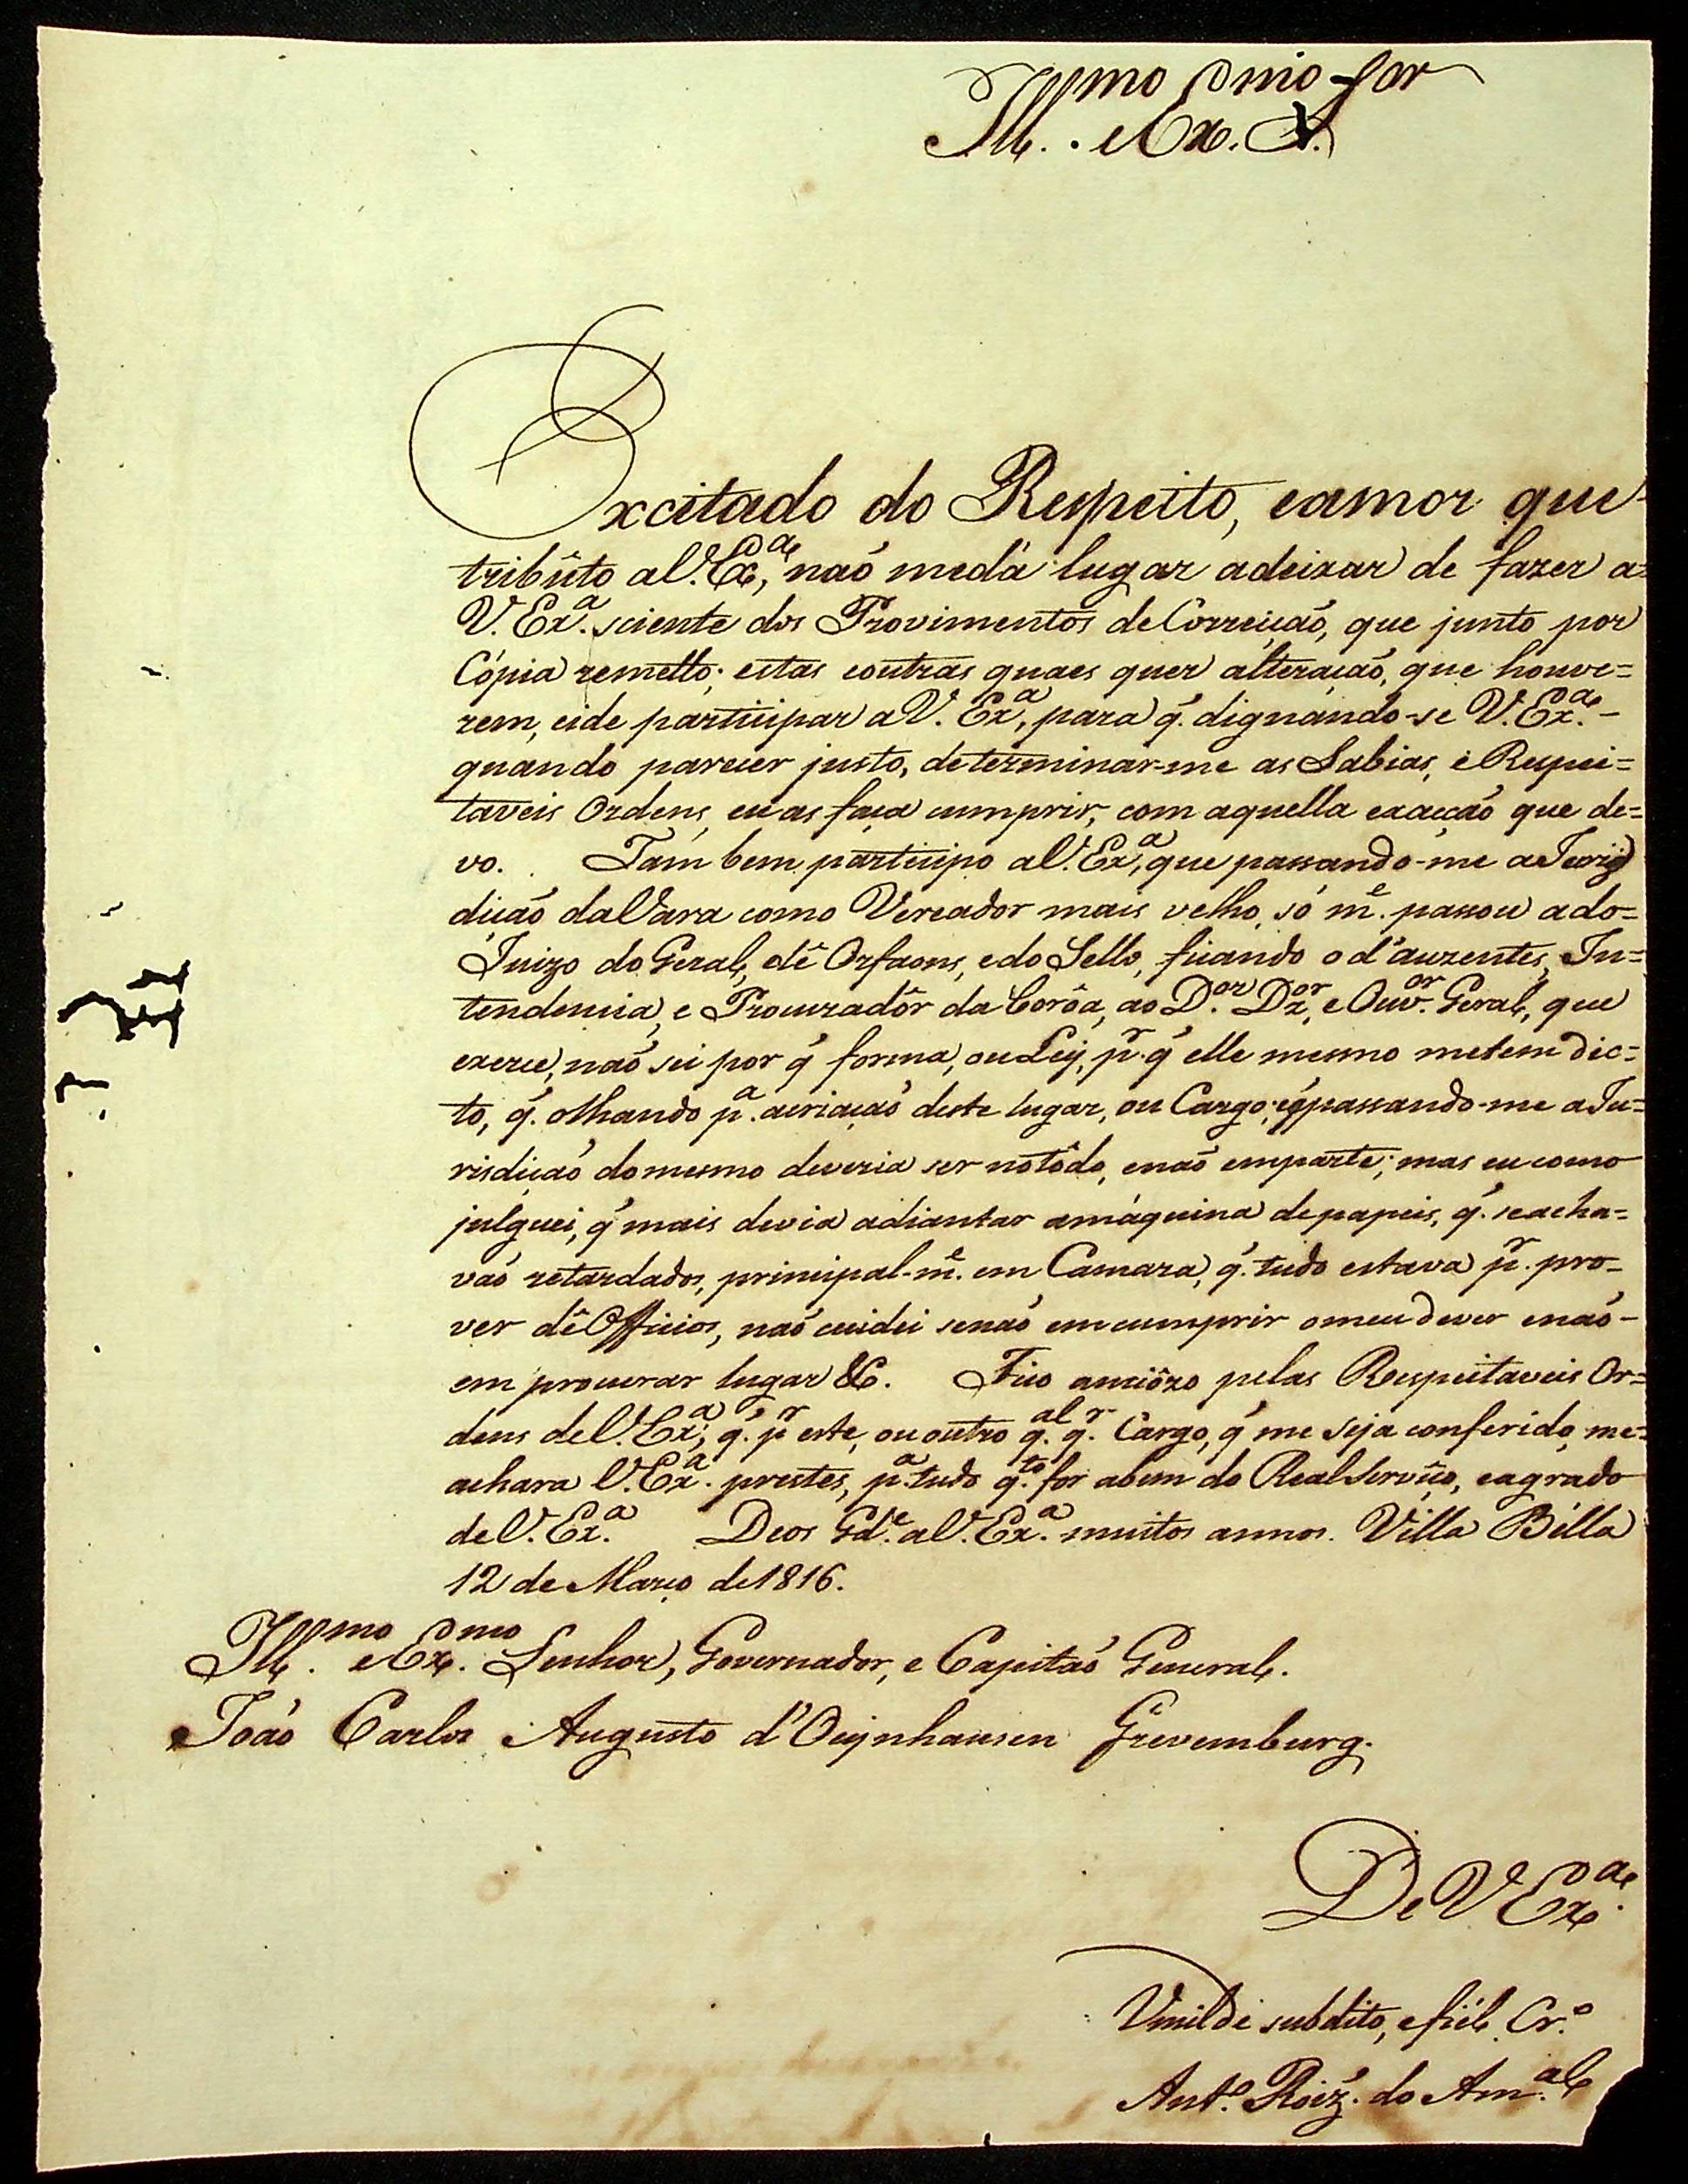 Ill.mo e Ex.mo Sor
Excitado do Respeito, eamor que
tribûto aV. Ex.a, naõ medá lugar adeixar de fazer a=
V. Ex.a sciente dos Provimentos de Correiçaõ, que junto por
Cópia remetto; estas eoutras quaes quer alteraçaõ, que houve=
rem, eide participar aV. Ex.a, para q̃. dignando-se V. Ex.a -
quando parecer justo, determinar-me as Sabias, e Respei=
taveis Ordens, eu as faça cumprir, com aquella exacçaõ que de=
vo. Tam bem participo aV. Ex.a, que passando-me a Juriz
diçaõ daVara como Vereador mais velho, só m.e passou ado=
Juizo do Geral, dê Orfaons, edo Sello, ficando o d'auzentes, In=
tendencia, e Procuradôr da Corôa, ao D.or Dz.or, e Ouv.or Geral, que
exerce, naõ sei por q̃ forma, ou Ley, p.r q̃ elle mesmo metem dic=
to, q̃. olhando p.a acriaçaõ deste lugar, ou Cargo, passando-me aJu=
risdiçaõ domesmo deveria ser notôdo, enaõ emparte; mas eu como
julguei, q̃ mais devia adiantar amáquina depapeis, q̃. seacha=
vaõ retardados, principal-m.e em Camara, q̃. tudo estava p.r pro=
ver dê Officios, naõ cuidei senaõ emcumprir omeu dever enaõ -
em procurar lugar &c. Fico anciôzo pelas Respeitaveis Or=
dens deV. Ex.a; q̃. p.r este, ou outro q.al q.r Cargo, q̃ me seja conferido, me=
achara V. Ex.a prestes, p.a tudo q.to for abem do Real Serviço, eagrado
deV. Ex.a Deos G.de aV. Ex.a muitos annos. Villa Bélla
12 de Março de 1816.
Ill.mo e Ex.mo Senhor, Governador, e Capitaõ General.
Joaõ Carlos Augusto d'Oeynhausen Grevemburg.
De V Ex.a
Umilde subdito, efiél Cr.o
Ant.o Roiz. do Am.al